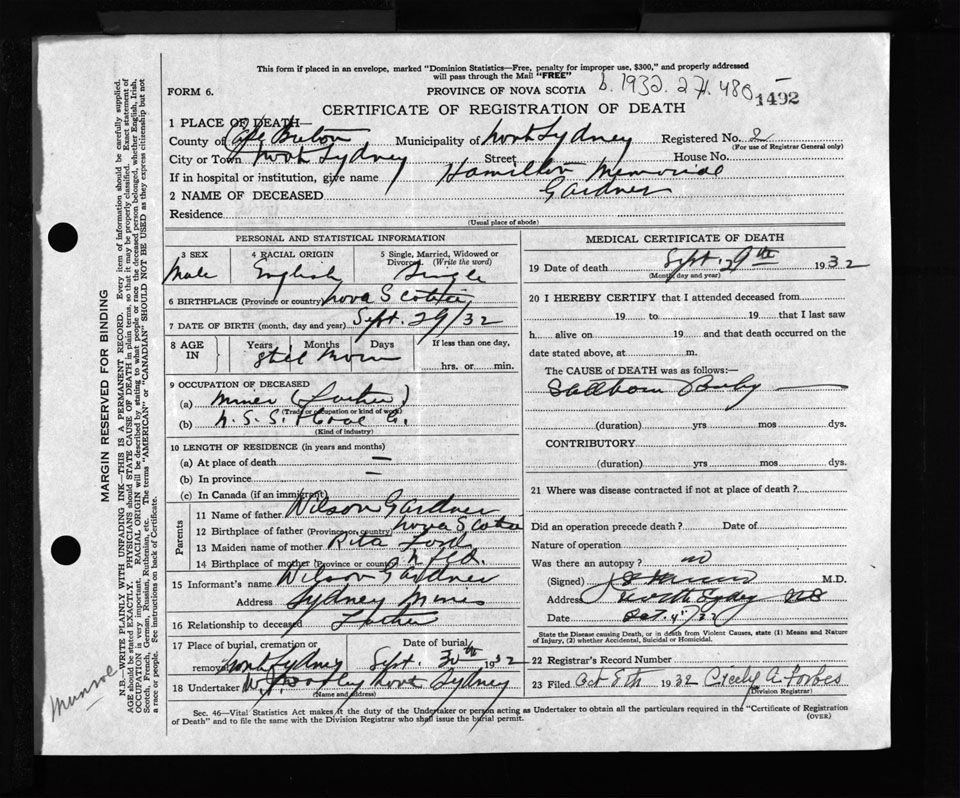 This form if placed in an envelope, marked "Dominion Statistics—Free, penalty for improper use, $300," and properly addressed
will pass through the Mail "FREE"
FORM 6.
PROVINCE OF NOVA SCOTIA
b. 1932. 27. 480
1492
CERTIFICATE OF REGISTRATION OF DEATH
1 PLACE OF DEATH—
County of Cape Breton Municipality of North Sydney Registered No. 2
(For use of Registrar General only)
City or Town North Sydney Street House No.
If in hospital or institution, give name Hamilton Memorial
2 NAME OF DECEASED Gardner
Residence
(Usual place of abode)
PERSONAL AND STATISTICAL INFORMATION
3 SEX 4 RACIAL ORIGIN 5 Single, Married, Widowed or Divorced (Write the word)
Male English Single
6 BIRTHPLACE (Province or country) Nova Scotia
7 DATE OF BIRTH (month, day and year) Sept. 29/32
8 AGE IN Years Months Days If less than one day,
Still Born hrs. or min.
9 OCCUPATION OF DECEASED
(a) Miner (Father)
(Trade or occupation or kind of work)
(b) N. S. S. & Coal Co.
(Kind of industry)
10 LENGTH OF RESIDENCE (in years and months)
(a) At place of death —
(b) In province —
(c) In Canada (if an immigrant)
Parents
11 Name of father Wilson Gardner
12 Birthplace of father (Province or country) Nova Scotia
13 Maiden name of mother Rita Ford
14 Birthplace of mother (Province or country) Nfld.
15 Informant's name Wilson Gardner
Address Sydney Mines
16 Relationship to deceased Father
17 Place of burial, cremation or removal North Sydney Date of burial Sept. 30th 1932
18 Undertaker North Sydney
(Name and address)
MEDICAL CERTIFICATE OF DEATH
19 Date of death Sept. 29th 1932
(Month, day and year)
20 I HEREBY CERTIFY that I attended deceased from
19 to 19 that I last saw
h alive on 19 and that death occurred on the
date stated above, at m.
The CAUSE of DEATH was as follows:—
Stillborn Baby
(duration) yrs mos dys.
CONTRIBUTORY
(duration) yrs mos dys.
21 Where was disease contracted if not at place of death?
Did an operation precede death? Date of
Nature of operation
Was there an autopsy? no
(Signed) M.D.
Address North Sydney NS
Date Oct. 4/32
State the Disease causing Death, or in death from Violent Causes, state (1) Means and Nature
of Injury, (2) whether Accidental, Suicidal or Homicidal.
22 Registrar's Record Number
23 Filed Oct 8th 1932 Cicely A. Forbes
(Division Registrar)
Sec. 46—Vital Statistics Act makes it the duty of the Undertaker or person acting as Undertaker to obtain all the particulars required in the "Certificate of Registration
of Death" and to file the same with the Division Registrar who shall issue the burial permit.
(OVER)
MARGIN RESERVED FOR BINDING
N.B.—WRITE PLAINLY WITH UNFADING INK—THIS IS A PERMANENT RECORD. Every item of information should be carefully supplied.
AGE should be stated EXACTLY. PHYSICIANS should STATE CAUSE OF DEATH in plain terms, so that it may be properly classified. Exact statement of
OCCUPATION is very important. RACIAL ORIGIN will be described by stating to what people or race the deceased person belonged, whether English, Irish,
Scotch, French, German, Russian, Ruthenian, etc. The terms "AMERICAN" or "CANADIAN" SHOULD NOT BE USED as they express citizenship but not
a race or people. See instructions on back of Certificate.
Munroe